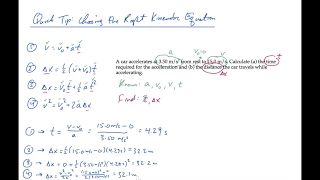 Quick Tip: Choosing the Right Kinematic Equation
① v = v₀ + at
② Δx = ½(v + v₀)t
③ Δx = v₀t + ½at²
④ v² = v₀² + 2aΔx
a v₀=0
A car accelerates at 3.50 m/s² from rest to 15.0 m/s. Calculate (a) the time
required for the acceleration and (b) the distance the car travels while
accelerating.
t
v
Δx
Known: a, v₀, v, t
Find: t, Δx
① → t = (v - v₀)/a = (15.0 m/s - 0)/(3.50 m/s²) = 4.29 s
② → Δx = ½(15.0 m/s - 0)(4.29 s) = 32.2 m
③ → Δx = 0 + ½(3.50 m/s²)(4.29 s)² = 32.2 m
= 32.1 m